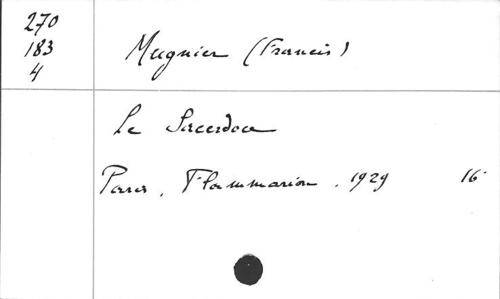 270
183
4
Mugnier (Francis)
Le Sacerdoce
Paris, Flammarion, 1929 16°